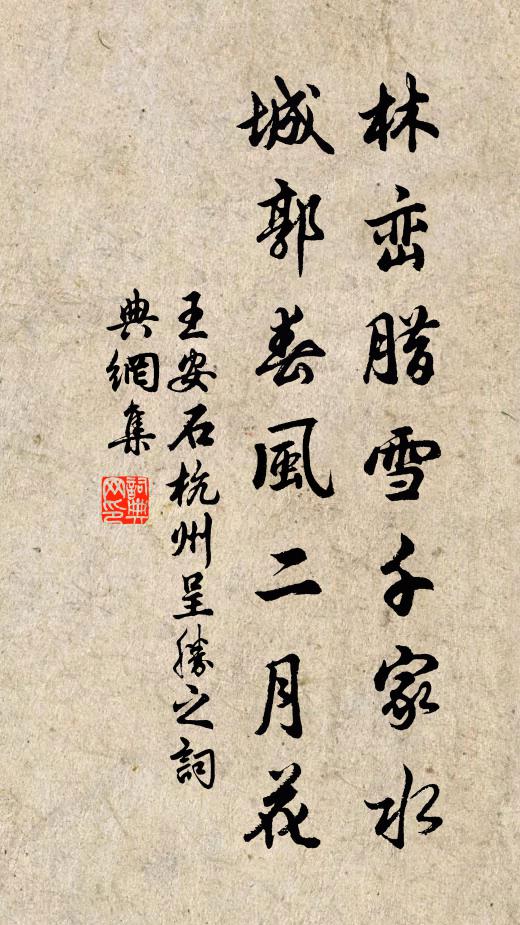 林峦腊雪千家水
城郭春風二月花
王安石杭州呈勝之詞
典網集
詞典
网印